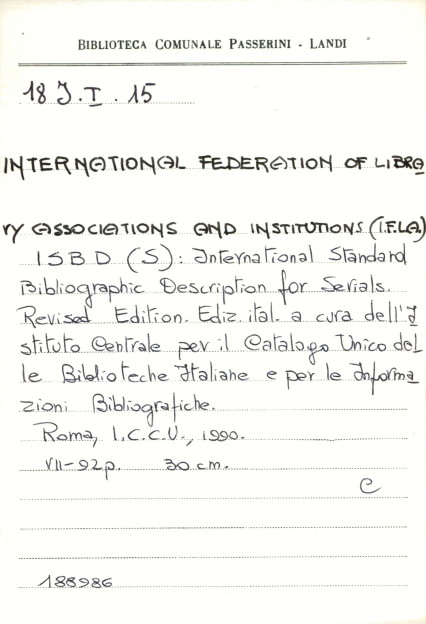 BIBLIOTECA COMUNALE PASSERINI - LANDI
18 J.I. 15
INTERNATIONAL FEDERATION OF LIBRA
RY ASSOCIATIONS AND INSTITUTIONS (I.F.L.A)
ISBD (S): International Standard
Bibliographic Description for Serials.
Revised Edition. Ediz. ital. a cura dell'I
stituto Centrale per il Catalogo Unico del
le Biblioteche Italiane e per le Informa
zioni Bibliografiche.
Roma, I.C.C.U., 1990.
VII-92p. 30 cm.
C
188986